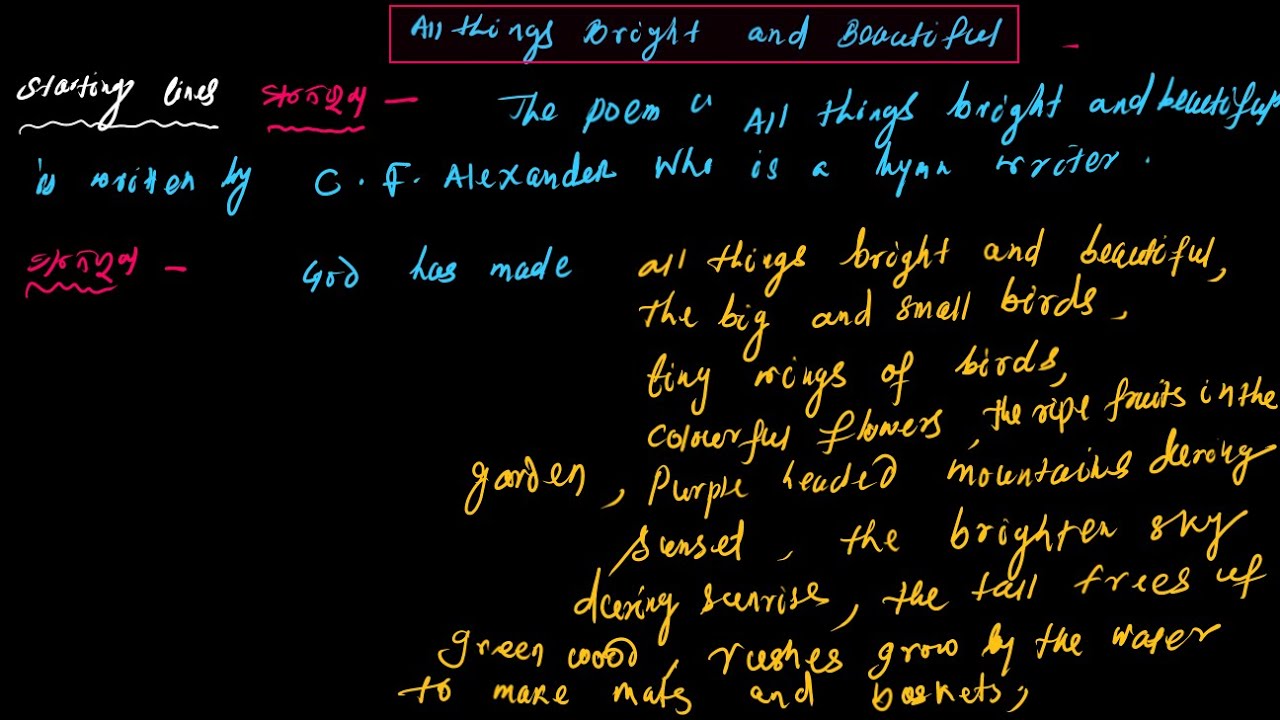 All things Bright and Beautiful -
Starting lines - The poem " All things bright and beautiful
is written by C. F. Alexander Who is a hymn writer.
- God has made all things bright and beautiful,
the big and small birds,
tiny wings of birds,
colourful flowers, the ripe fruits in the
garden, Purple headed mountains during
sunset, the brighten sky
during sunrise, the tall trees of
green wood, rushes grow by the water
to make mats and baskets,